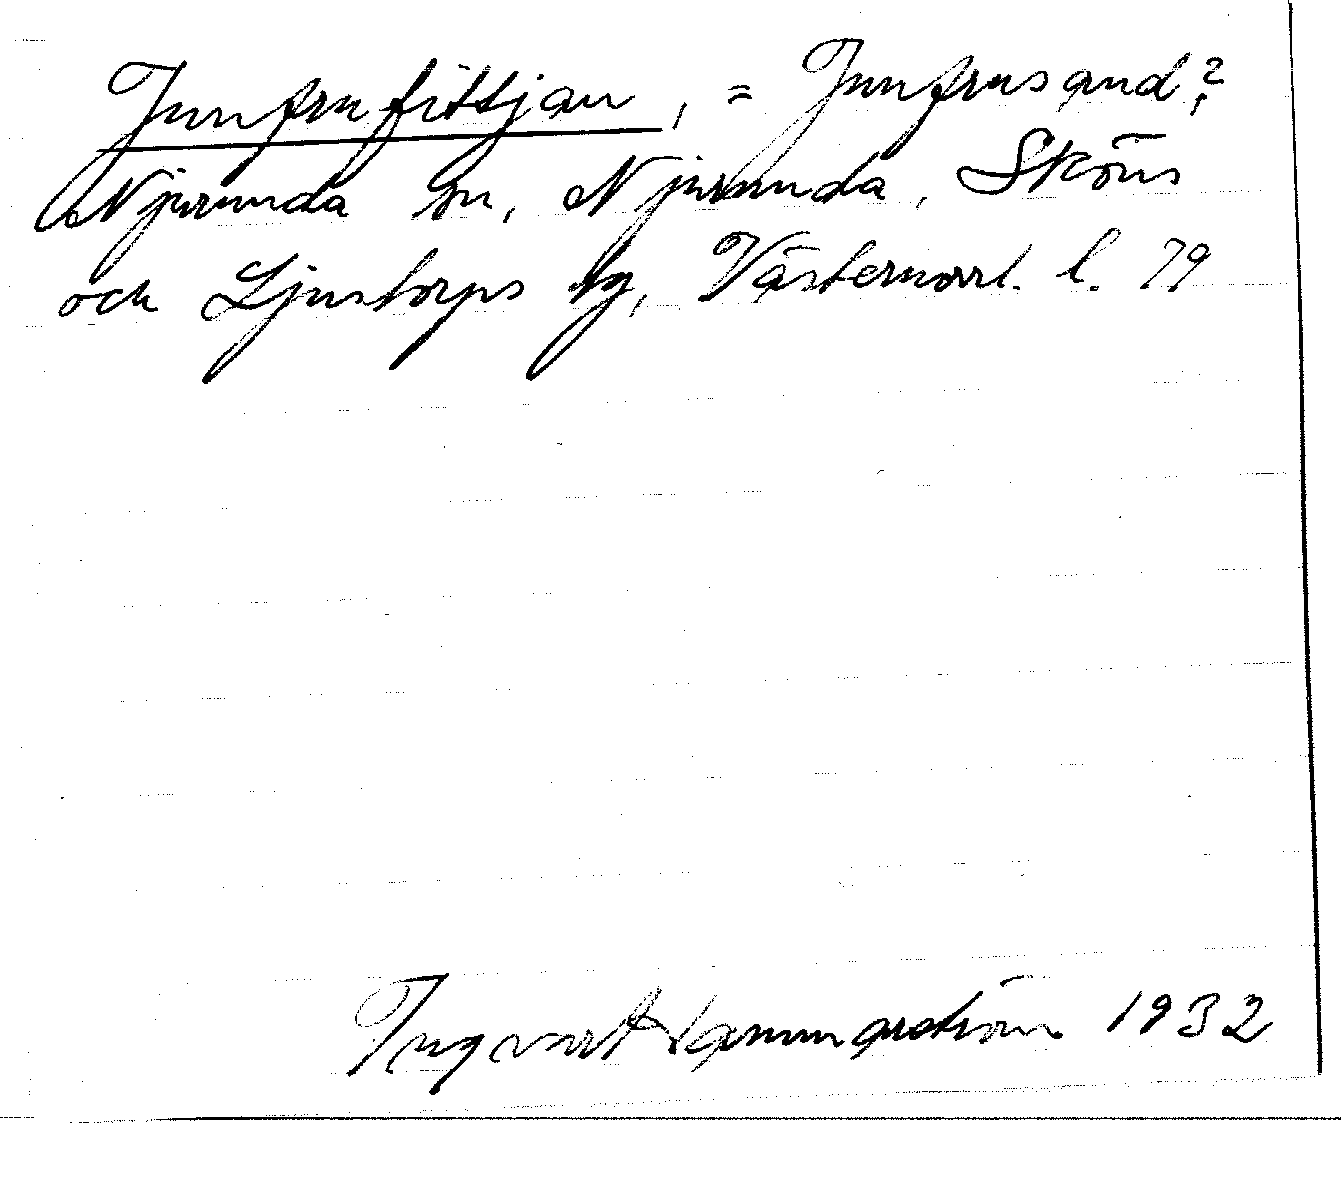 Junfrufittjan, = Junfrusand?
Njurunda sn, Njurunda, Sköns
och Ljustorps tg, Västernorrl. l. 79
Ingvar Hammarström 1932